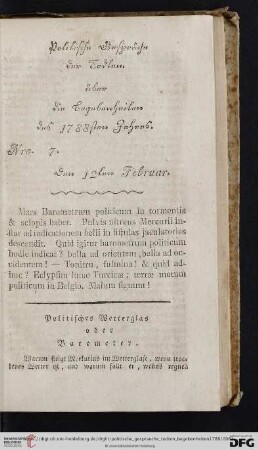 Politische Gespräche
der Todten
über
die Begebenheiten
des 1788sten Jahres.
Nro. 7.
Den 12ten Februar.
Mars Barometrum politicum in tormentis
& sclopis habet. Pulvis nitreus Mercurii in-
star ad indicationem belli in fistulas jaculatorias
descendit. Quid igitur barometrum politicum
hodie indicat? bella ad orientem, bella ad oc-
cidentem! — Tonitru, fulmina! & quid ad-
huc? Eclypsin lunae Turcicae; terrae motum
politicum in Belgio. Malum signum!
Politisches Wetterglas
oder
Barometer.
Warum steigt Merkurius im Wetterglase, wenn tro-
ckenes Wetter ist, und warum fällt er, wenns regnen